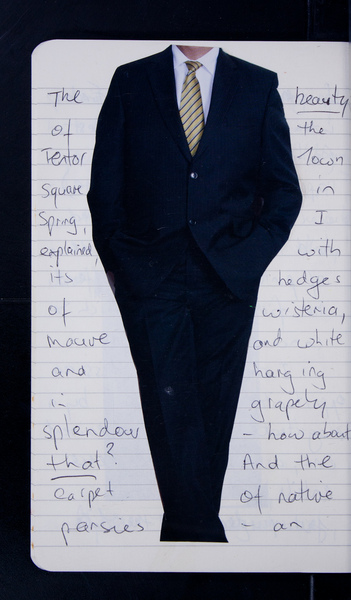 The beauty
of the
Textor Town
Square in
Spring, I
explained, with
its hedges
of wisteria,
mauve and white
and hanging
in grapely
splendour - how about
that? And the
carpet of native
pansies - an